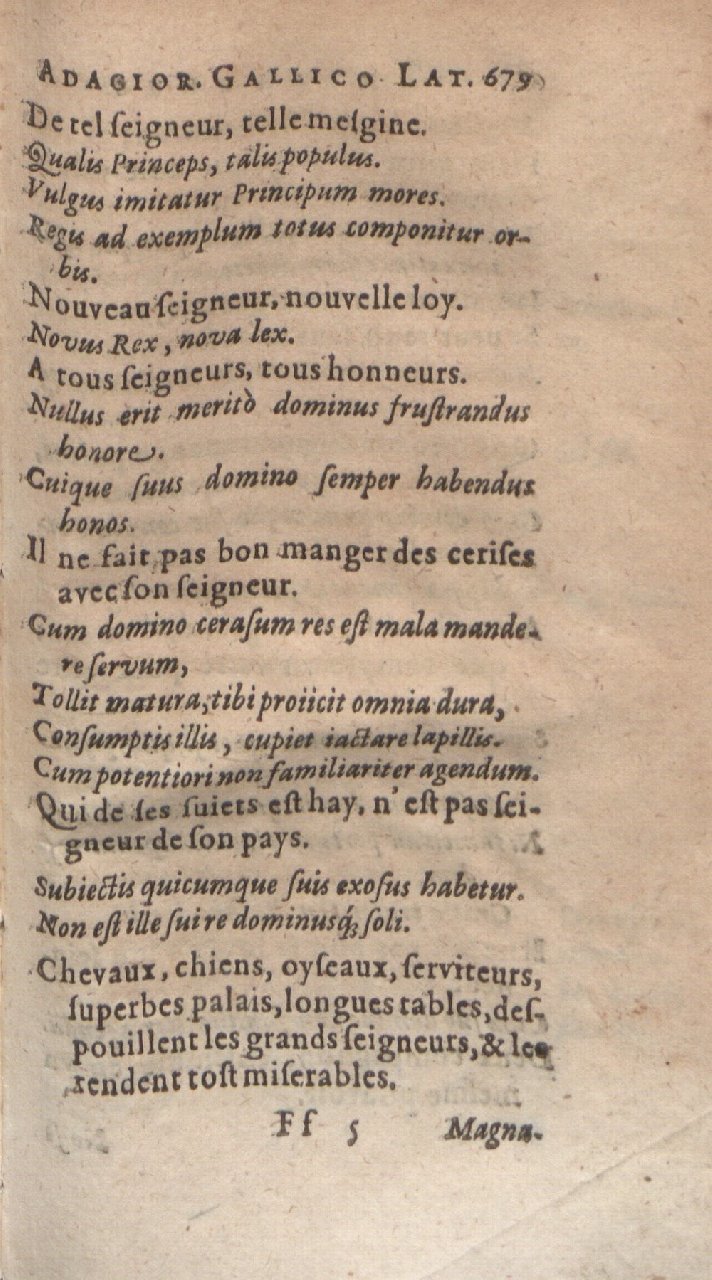 ADAGIOR. GALLICO LAT. 679
De tel ſeigneur, telle meſgine.
Qualis Princeps, talis populus.
Vulgus imitatur Principum mores.
Regis ad exemplum totus componitur or-
bis.
Nouveau ſeigneur, nouvelle loy.
Novus Rex, nova lex.
A tous ſeigneurs, tous honneurs.
Nullus erit meritò dominus fruſtrandus
honore.
Cuique ſuus domino ſemper habendus
honos.
Il ne fait pas bon manger des ceriſes
avec ſon ſeigneur.
Cum domino ceraſum res eſt mala mande-
re ſervum,
Tollit matura, tibi proiicit omnia dura,
Conſumptis illis, cupiet iactare lapillis.
Cum potentiori non familiariter agendum.
Qui de ſes ſuiets eſt hay, n'eſt pas ſei-
gneur de ſon pays.
Subiectis quicumque ſuis exoſus habetur.
Non eſt ille ſui re dominusq́; ſoli.
Chevaux, chiens, oyſeaux, ſerviteurs,
ſuperbes palais, longues tables, deſ-
pouillent les grands ſeigneurs, & les
rendent toſt miſerables.
Ff 5 Magna-